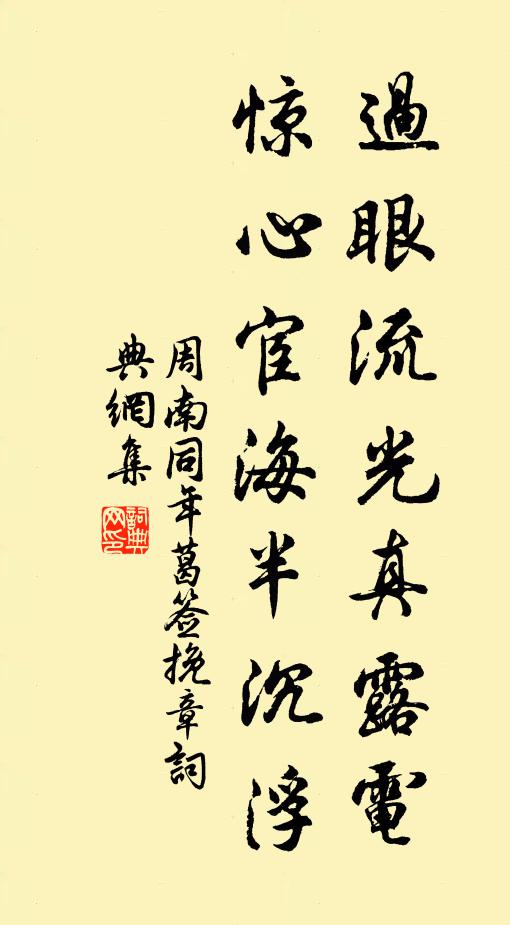 過眼流光真露電
惊心宦海半沉浮
周南同年葛签挽章詞
典網集
詞典网印